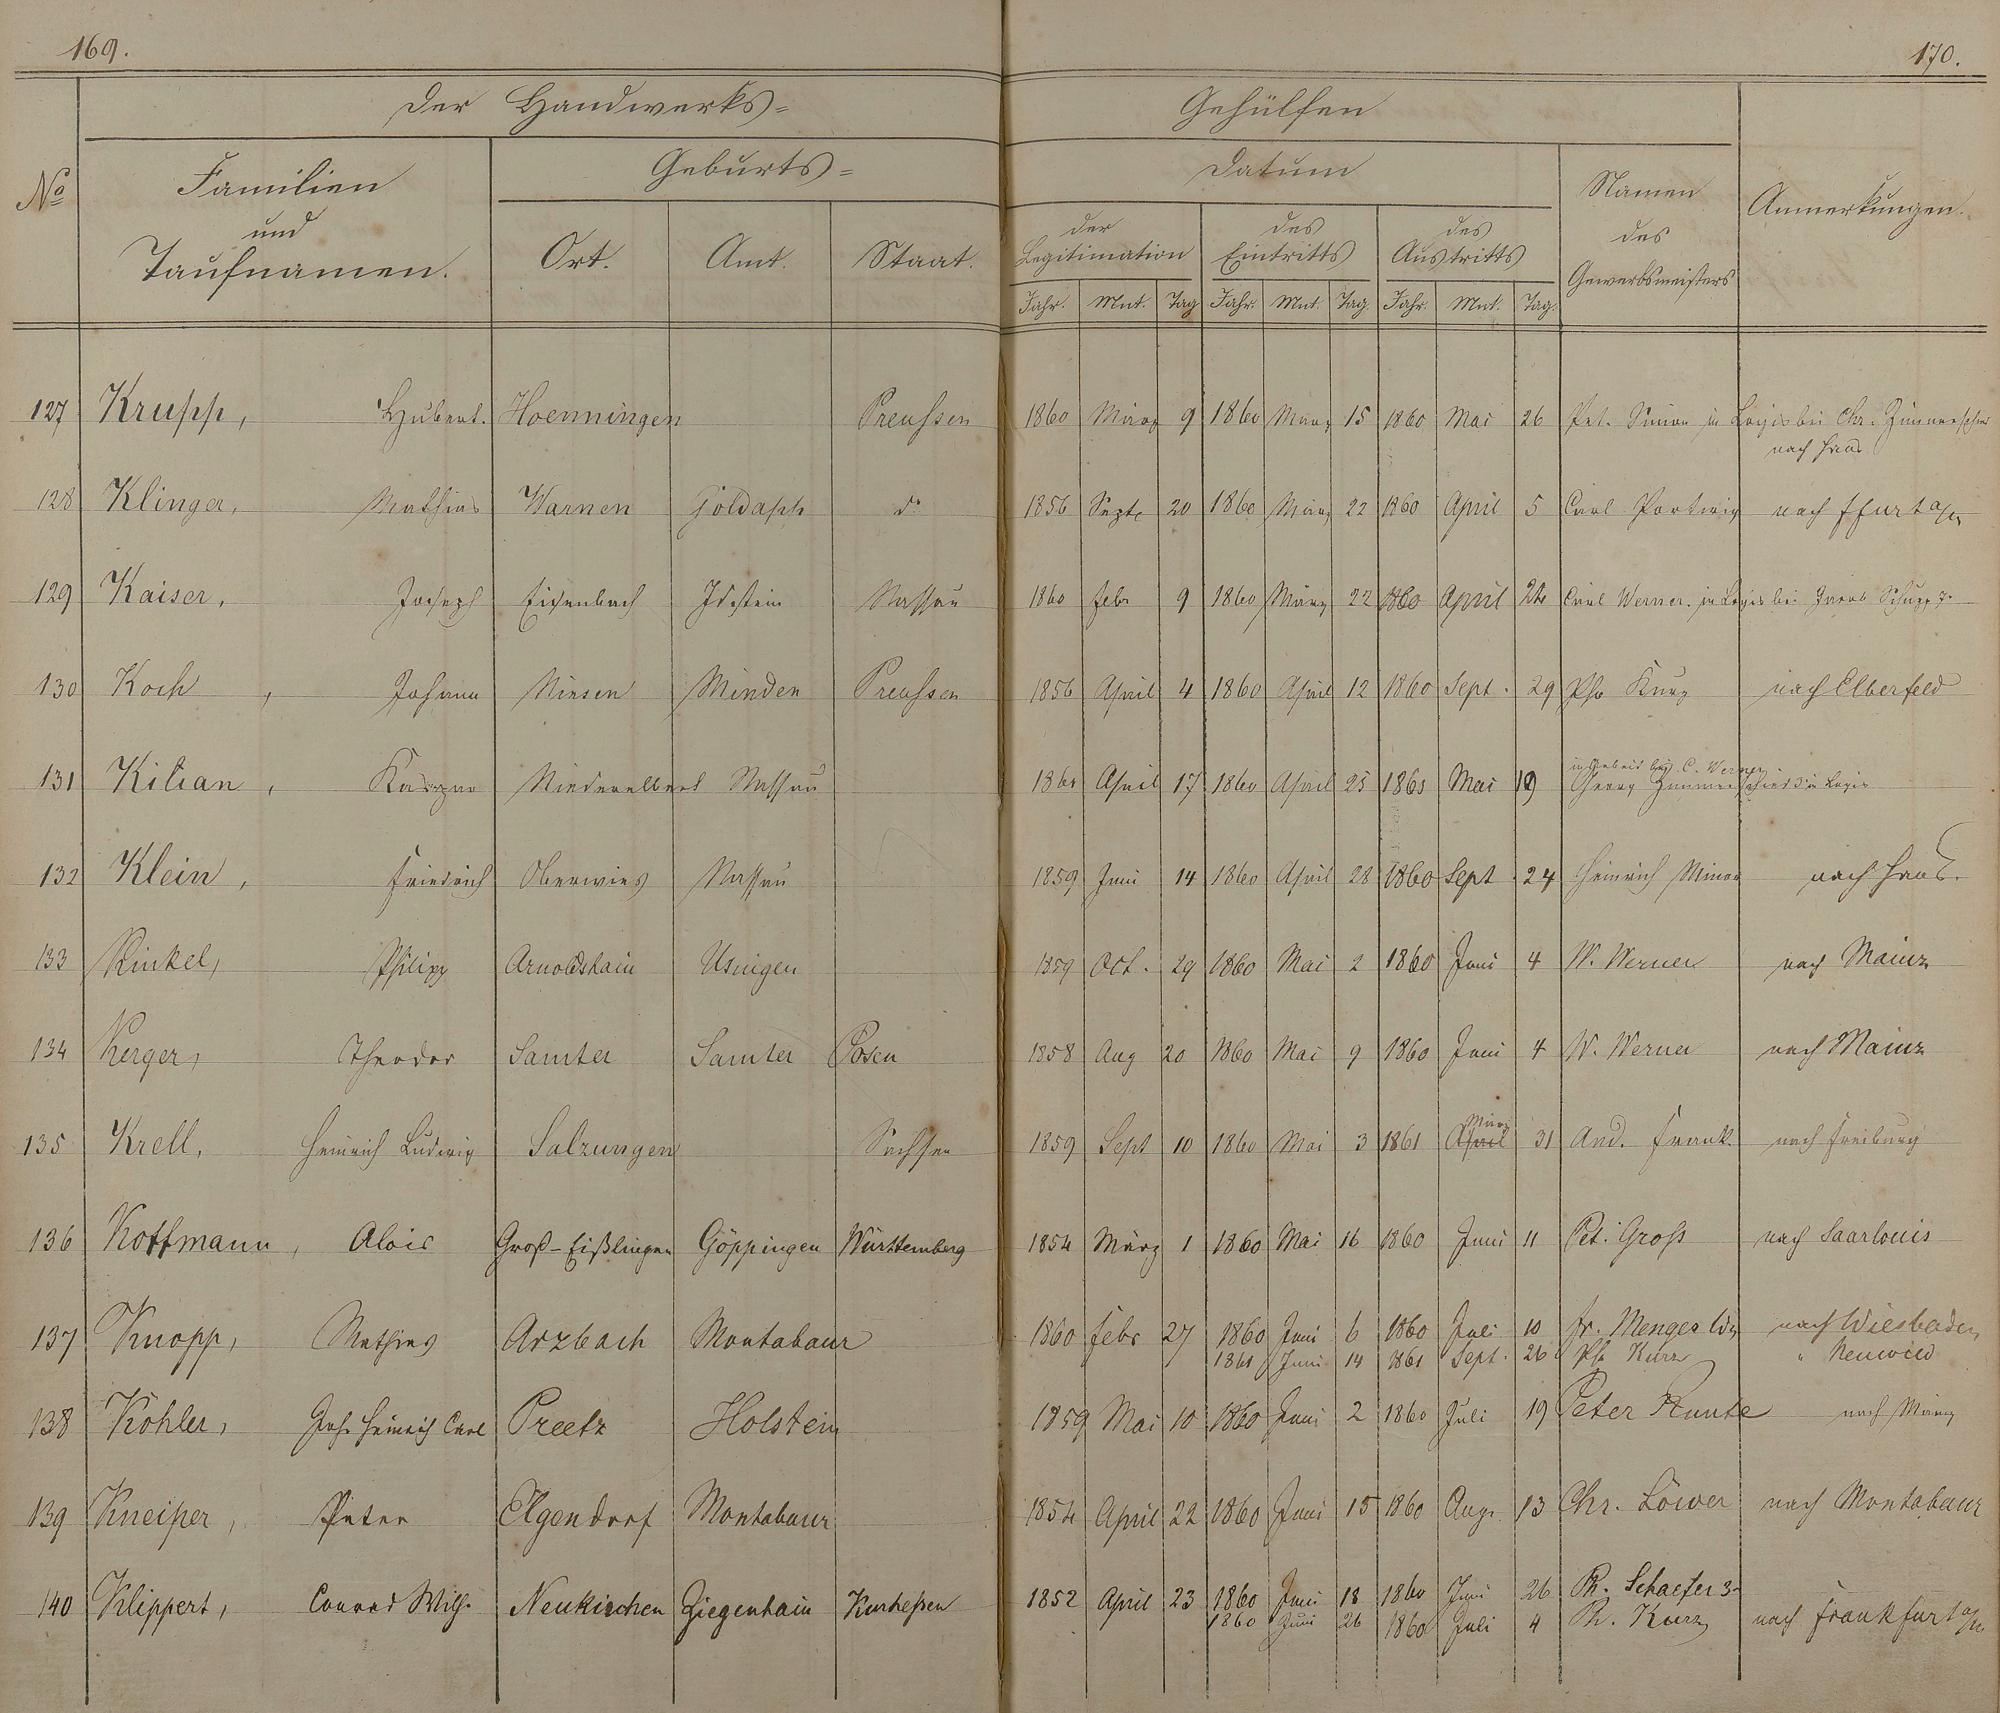 169.
170.
Der Handwerks=
Gehülfen
No
Familien
und
Taufnamen.
Geburts=
Ort.
Amt.
Staat.
Datum
der
Legitimation
des
Eintritts
des
Austritts
Jahr. Mnt. Tag Jahr. Mnt. Tag. Jahr. Mnt. Tag.
Namen
des
Gewerbsmeisters
Anmerkungen.
127 Krupp, Hubert. Hoenningen Preußen 1860 März 9 1860 März 15 1860 Mai 26 Pet. Simon in Logis bei Chr.
nach Haus
128 Klinger, Mathias Warnen Goldaph do 1856 Sept. 20 1860 März 22 1860 April 5 Carl nach Ffurt a/M
129 Kaiser, Joseph Eisenbach Idstein Nassau 1860 Febr 9 1860 März 22 1860 April 22 Carl Werner. in Logis bei Jacob Schupp
130 Koch, Johann Niesen Minden Preußen 1856 April 4 1860 April 12 1860 Sept. 29 Ph. Kurz nach Elberfeld
131 Kilian, Kaspar Niederelbert Nassau 1860 April 17 1860 April 25 1861 Mai 19 in Arbeit bey C. Werner
Georg Zimmerschied 3 in Logis
132 Klein, Friedrich Oberwies Nassau 1859 Juni 14 1860 April 28 1860 Sept 24 Heinrich Minor nach Haus.
133 Kinkel, Philipp Arnoldshain Usingen 1859 Oct. 29 1860 Mai 2 1860 Juni 4 W. Werner nach Mainz
134 Kerger, Theodor Samter Samter Posen 1858 Aug 20 1860 Mai 9 1860 Juni 4 W. Werner nach Mainz
135 Krell, Heinrich Ludwig Salzungen Sachsen 1859 Sept 10 1860 Mai 3 1861 April März 31 And. Frank. nach Freiburg
136 Kottmann, Alois Groß-Eißlingen Göppingen Württemberg 1854 März 1 1860 Mai 16 1860 Juni 11 Pet. Groß nach Saarlouis
137 Knopp, Mathias Arzbach Montabaur 1860 Febr 27 1860 Juni 6 1860 Juli 10 Fr. Menges Ww nach Wiesbaden
1861 Juni 14 1861 Sept. 26 Ph Kurz " Neuwied
138 Köhler, Joh. Heinrich Carl Preetz Holstein 1859 Mai 10 1860 Juni 2 1860 Juli 19 Peter nach Mainz
139 Kneiper, Peter Elgendorf Montabaur 1854 April 22 1860 Juni 15 1860 Aug. 13 Chr. Löwer nach Montabaur
140 Klippert, Conrad Wilh. Neukirchen Ziegenhain Kurheßen 1852 April 23 1860 Juni 18 1860 Juni 26 Ph. Schaefer 3r
1860 Juni 26 1860 Juli 4 Ph. Kurz nach Frankfurt a/M